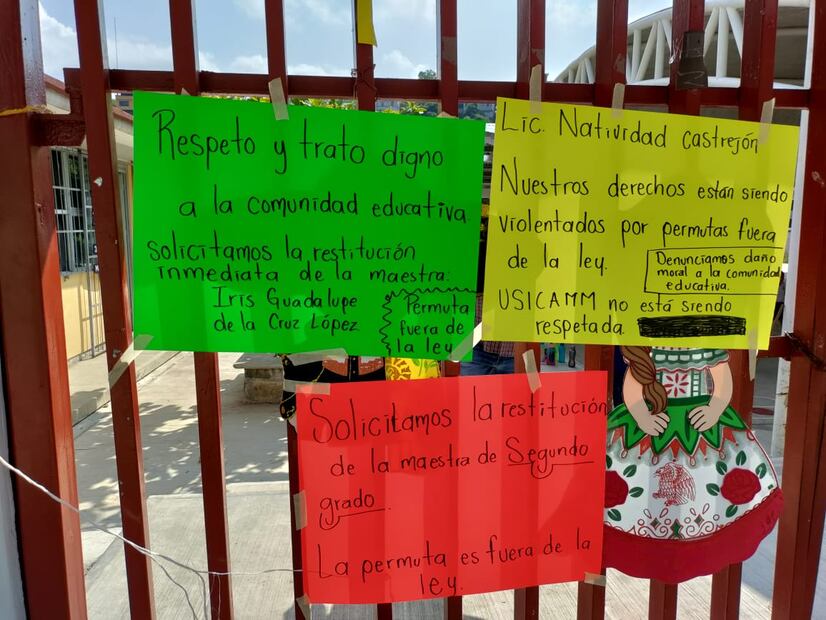 Respeto y trato digno
a la comunidad educativa
solicitamos la restitución
inmediata de la maestra:
Iris Guadalupe
de la Cruz López
Permuta
fuera de
la ley
Lic. Natividad Castrejón
Nuestros derechos están siendo
violentados por permutas fuera
de la ley.
Denunciamos daño
moral a la comunidad
educativa.
USICAMM no está siendo
respetada.
Solicitamos la restitución
de la maestra de Segundo
grado.
La permuta es fuera de la
ley.